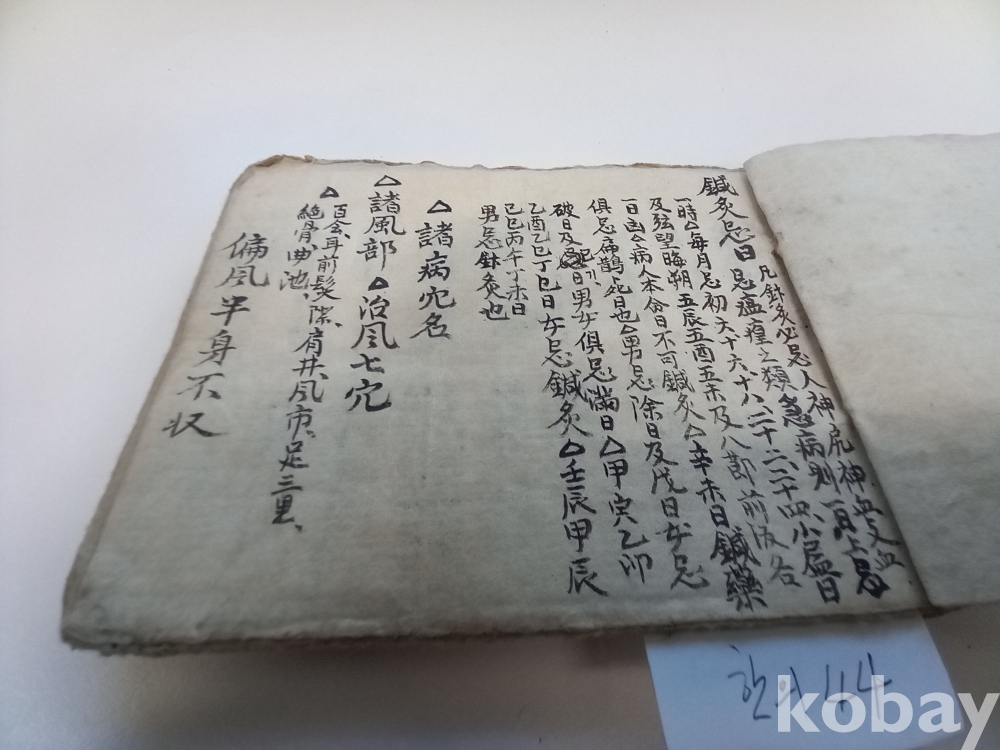 鍼灸忌日 凡鈦灸必忌人神尻神血支血
忌瘟𤟃之類急病則一日上忌
一時△每月忌初六、十六、十八、二十二、二十四、小盡日
及弦望晦朔五辰五酉五未及八節前後各
一日凶△病人本命日不可鍼灸△辛未日鍼藥
俱忌扁鵲死日也△男忌除日及戊日女忌
破日及己日男女俱忌滿日△甲寅乙卯
乙酉乙巳丁巳日女忌鍼灸△壬辰甲辰
己巳丙午丁未日
男忌鈦灸也
△諸病穴名
△諸風部△治風七穴
△百会、耳前髮際、肩井、風市、足三里、
絶骨、曲池、
偏風半身不収
44
kobay